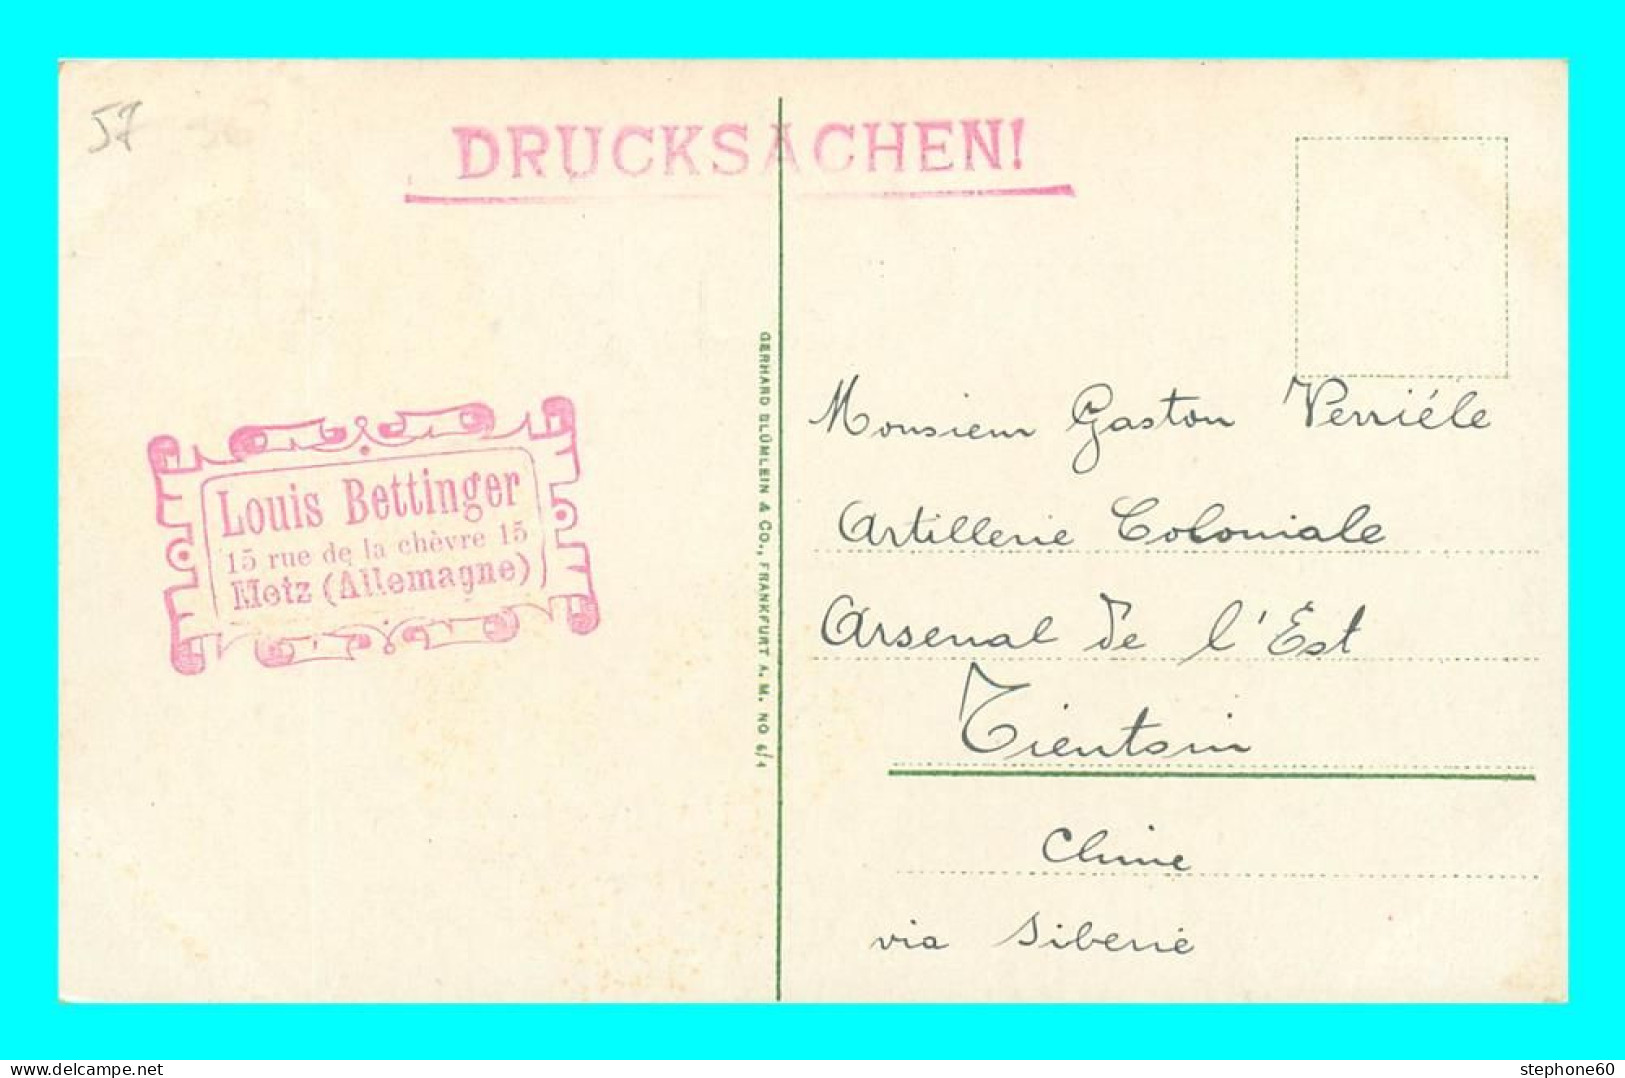 57
DRUCKSACHEN!
Louis Bettinger
15 rue de la chèvre 15
Metz (Allemagne)
GERHARD BLÜMLEIN & CO., FRANKFURT A. M. NO 6/4
Monsieur Gaston Verrièle
Artillerie Coloniale
Arsenal de l'Est
Tientsin
Chine
via Siberie
www.delcampe.net
stephone60